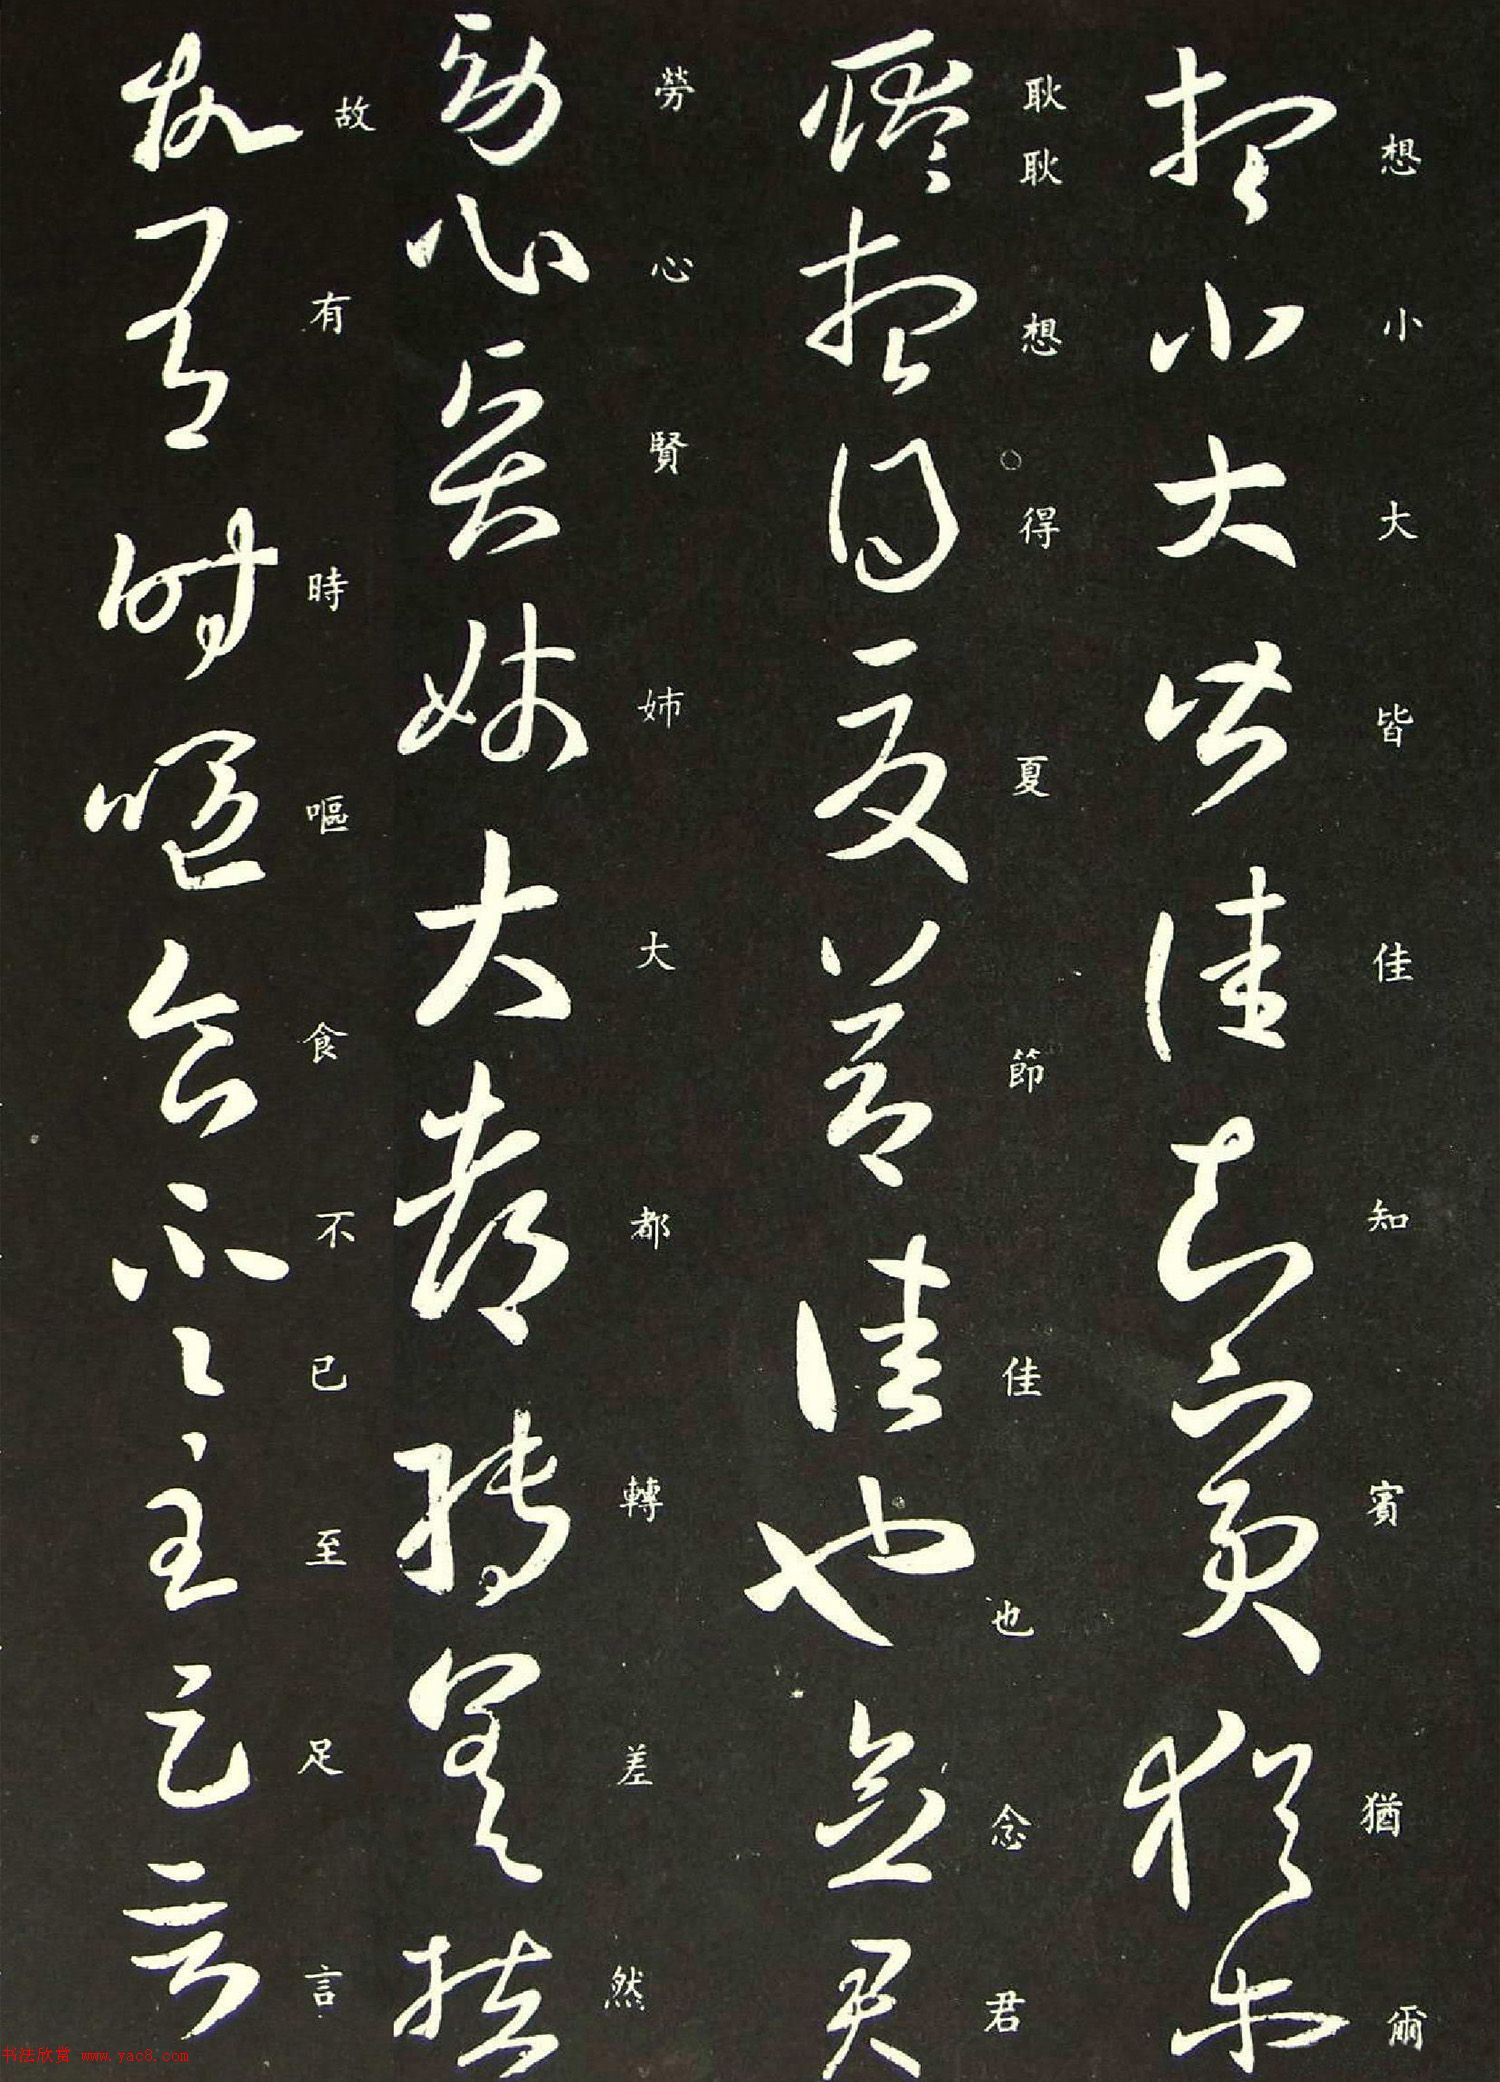 想小大皆佳知賓猶爾
耿耿想得夏節佳也念君
勞心賢姊大都轉差然
故有時嘔食不已至足言
書法欣赏 www.yac8.com